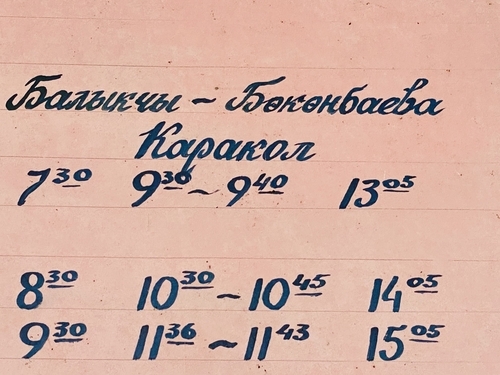 Балыкчы ~ Бөкөнбаева
Каракол
7 30 9 30 ~ 9 40 13 05
8 30 10 30 ~ 10 45 14 05
9 30 11 36 ~ 11 43 15 05